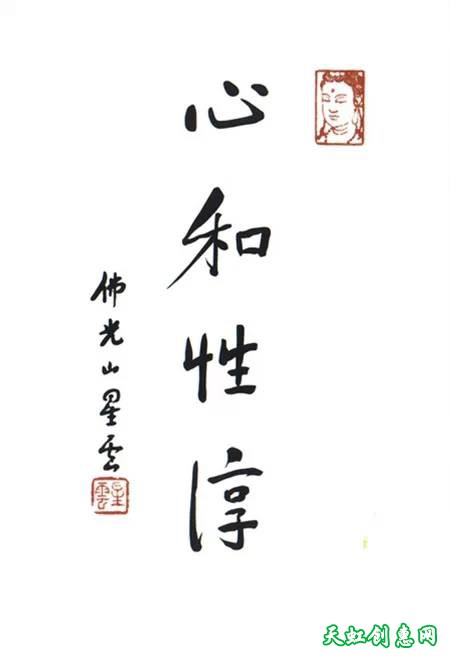 心和性淳
佛光山星雲
星雲
天虹创惠网